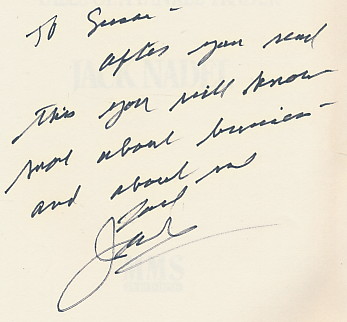 To Susan -
after you read
this you will know
more about business -
and about me
Love
Jack
JACK NADEL